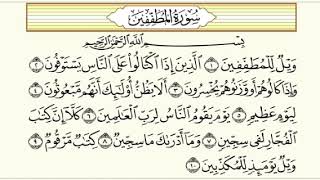 سُورَةُ المُطَفِّفِينَ
بِسْمِ اللَّهِ الرَّحْمَٰنِ الرَّحِيمِ
وَيْلٌ لِّلْمُطَفِّفِينَ ١ الَّذِينَ إِذَا اكْتَالُوا عَلَى النَّاسِ يَسْتَوْفُونَ ٢
وَإِذَا كَالُوهُمْ أَو وَّزَنُوهُمْ يُخْسِرُونَ ٣ أَلَا يَظُنُّ أُولَٰئِكَ أَنَّهُم مَّبْعُوثُونَ ٤
لِيَوْمٍ عَظِيمٍ ٥ يَوْمَ يَقُومُ النَّاسُ لِرَبِّ الْعَالَمِينَ ٦ كَلَّا إِنَّ كِتَابَ
الْفُجَّارِ لَفِي سِجِّينٍ ٧ وَمَا أَدْرَاكَ مَا سِجِّينٌ ٨ كِتَابٌ مَّرْقُومٌ ٩
وَيْلٌ يَوْمَئِذٍ لِّلْمُكَذِّبِينَ ١٠